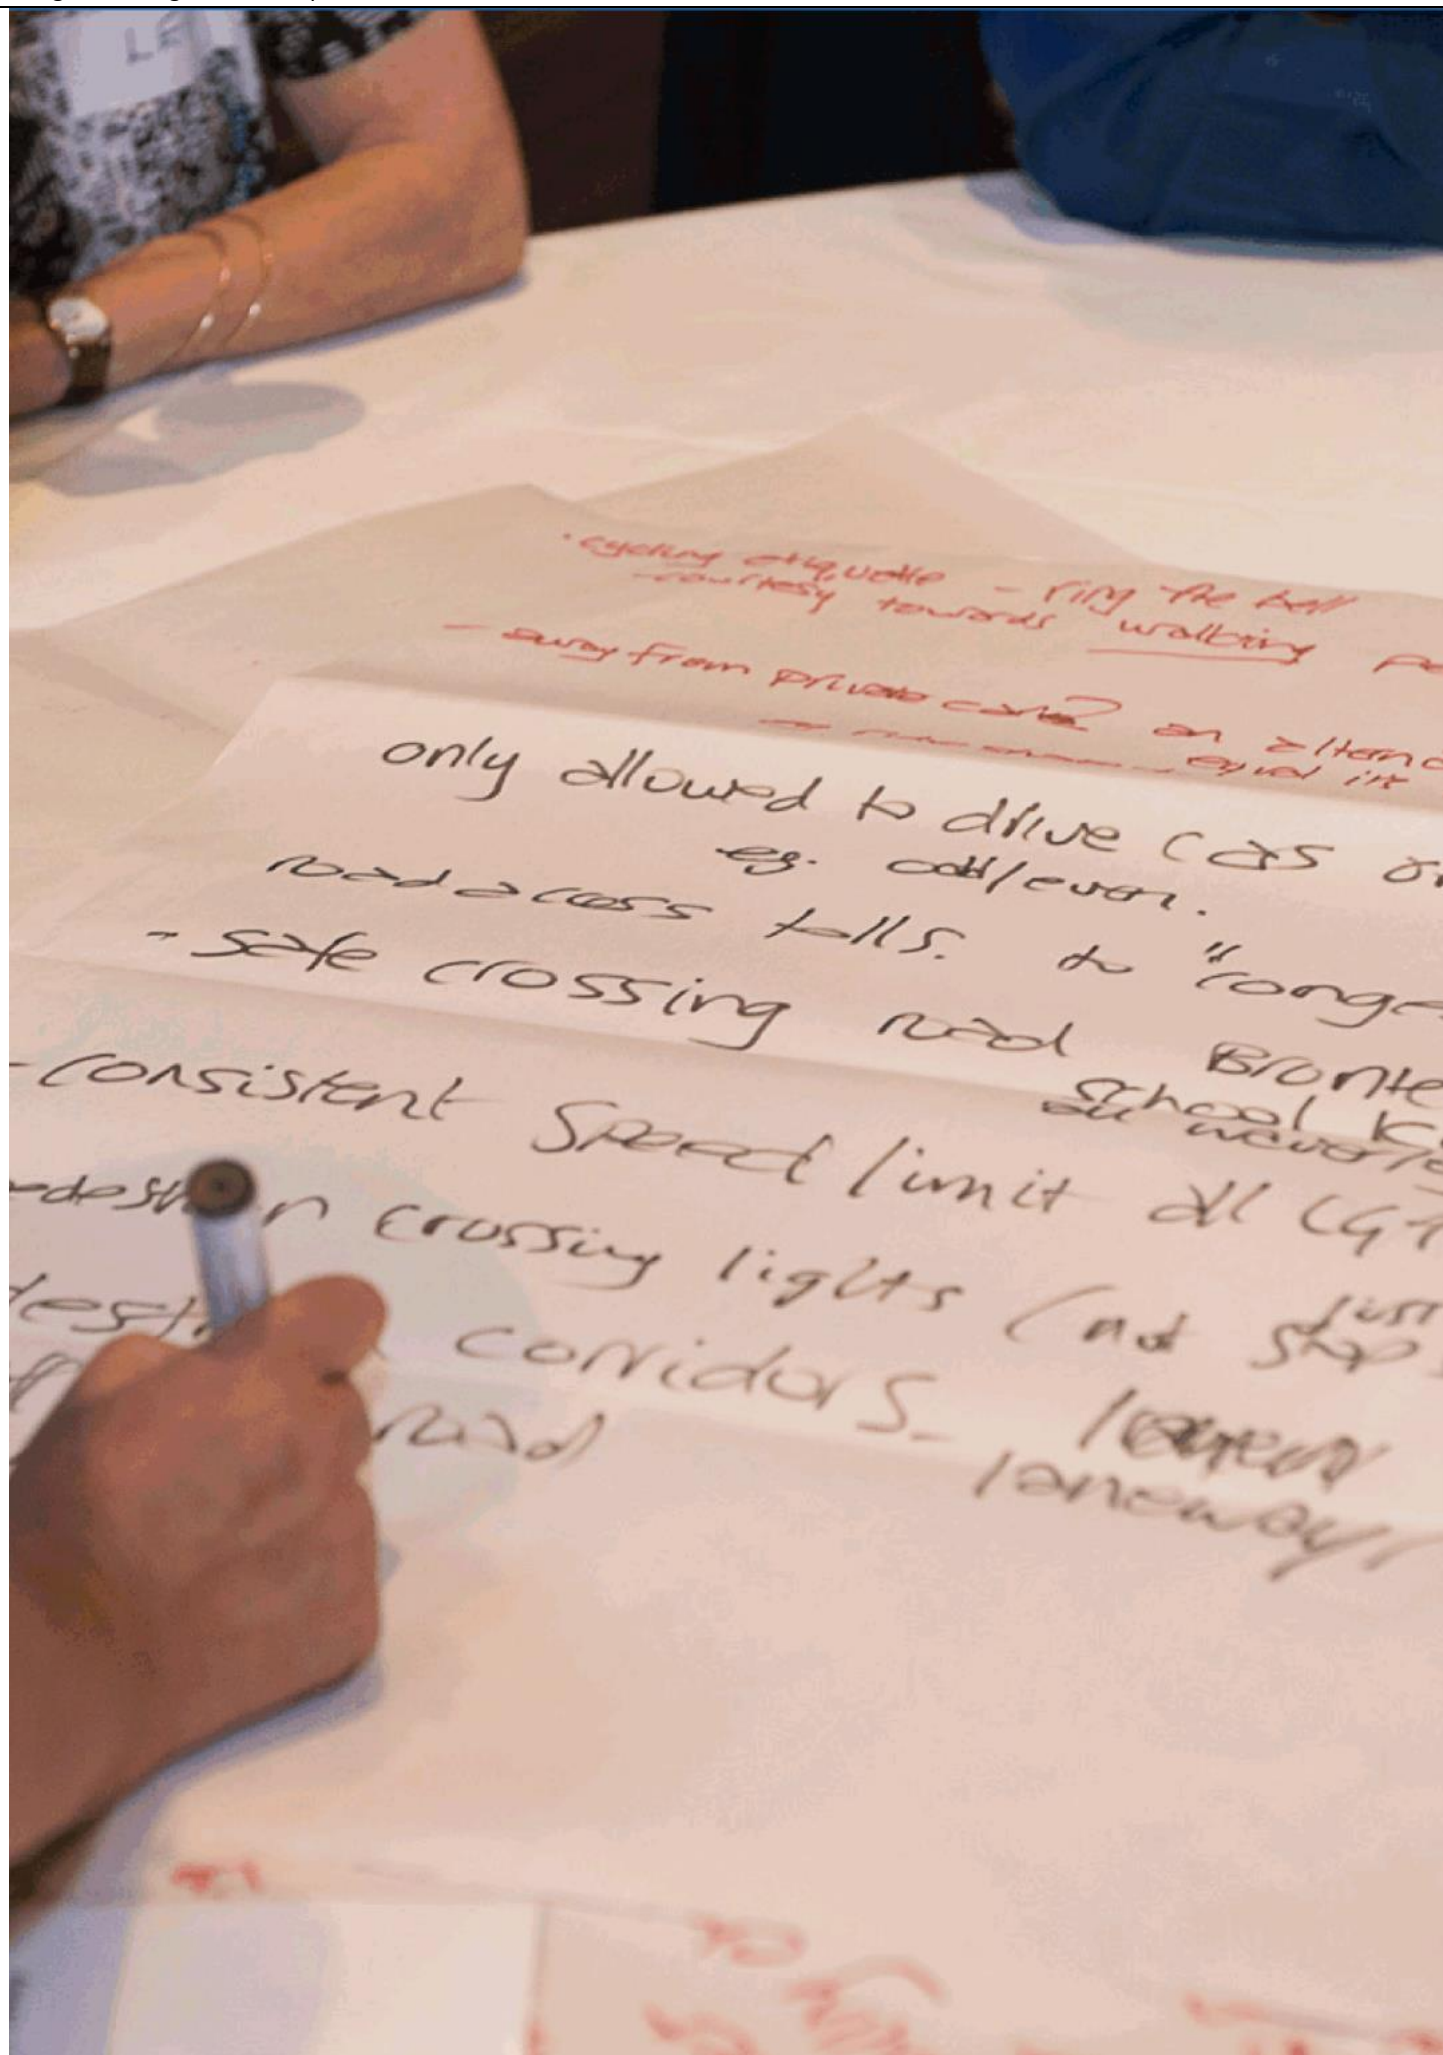 LE
· cycling etiquette - ring the bell
- courtesy towards walking pe
- away from private cars? an alterna
equal
only allowed to drive cars on
eg. odd/even.
road access tolls. to "conge
- safe crossing road Bronte
school k
- consistent speed limit all LGA
edest n crossing lights (not just
stop
dest corridors -
road laneway